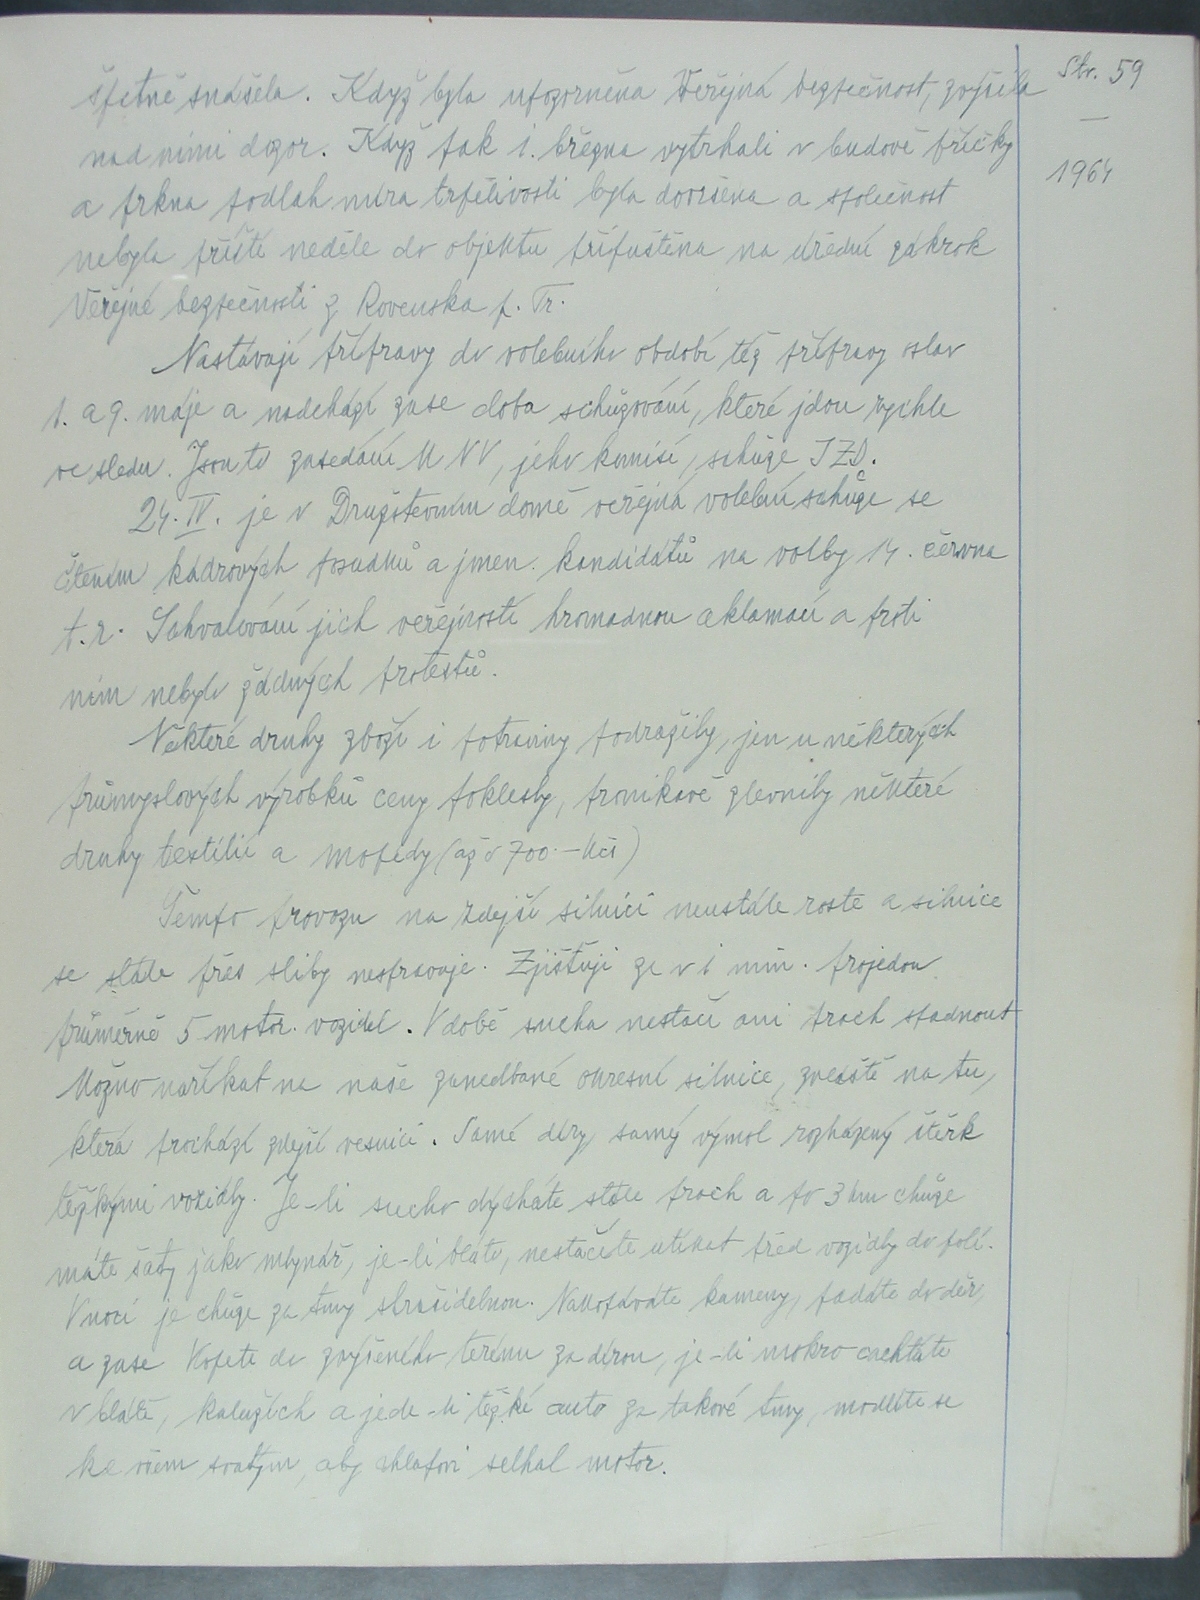 Str. 59
1964
špetně snášela. Když byla upozorněna Veřejná bezpečnost, zvýšila
nad nimi dozor. Když pak 1. března vytrhali v budově příčky
a prkna podlah míra trpělivosti byla dovršena a společnost
nebyla příští neděle do objektu připuštěna na úřední zákrok
Veřejné bezpečnosti z Rovenska p. Tr.
Nastávají přípravy do volebního období též přípravy oslav
1. a 9. máje a nadchází zase doba schůzování, které jdou rychle
ve sledu. Jsou to zasedání MNV, jeho komisí, schůze JZD.
24. IV. je v Družstevním domě veřejná volební schůze se
čtením kádrových posudků a jmen. kandidátů na volby 14. června
t.r. Schvalování jich veřejností hromadnou aklamací a proti
nim nebylo žádných protestů.
Některé druhy zboží i potraviny podražily, jen u některých
průmyslových výrobků ceny poklesly, pronikavě zlevnily některé
druhy textilií a mopédy (až o 700.– Kčs)
Tempo provozu na zdejší silnici neustále roste a silnice
se stále přes sliby nespravuje. Zjištuji že v 1 min. projedou
průměrně 5 motor. vozidel. V době sucha nestačí ani prach spadnout
Možno naříkat na naše zanedbané okresní silnice, zvláště na tu,
která prochází zdejší vesnicí. Samé díry, samý výmol rozházený štěrk
těžkými vozidly. Je-li sucho dýcháte stále prach a po 3 km chůze
máte šaty jako mlynář, je-li bláto, nestačíte utíkat před vozidly do polí.
V noci je chůze za tmy strašidelnou. Nakopáváte kameny, padáte do děr,
a zase kopete do zvýšeného terénu za dírou, je-li mokro cachtáte
v blátě, kalužích a jede-li těžké auto za takové tmy, modlete se
ke všem svatým, aby chlapovi selhal motor.